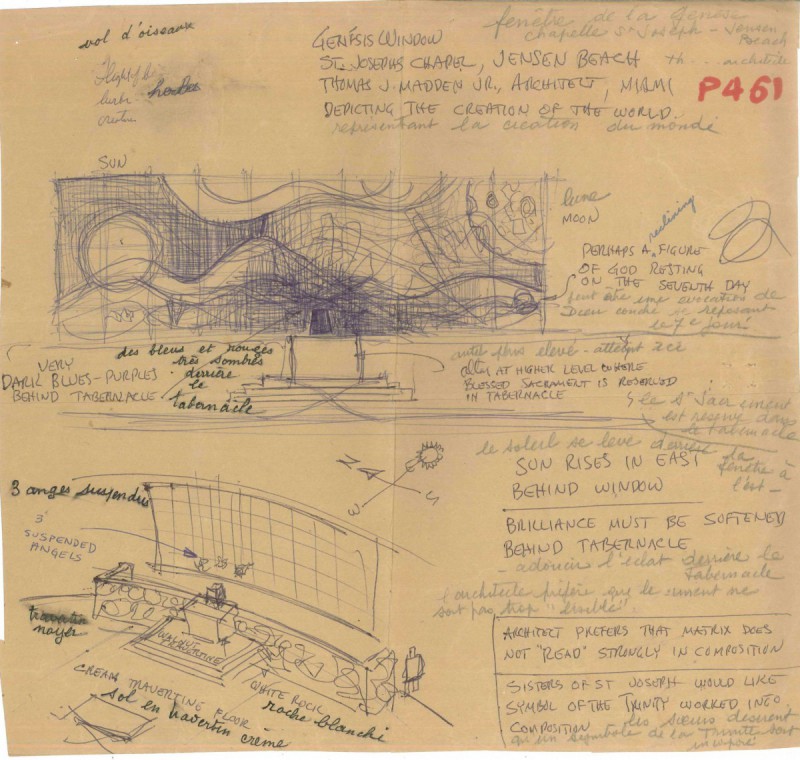 vol d'oiseaux
Flight of
GENESIS WINDOW
ST. JOSEPHS CHAPEL, JENSEN BEACH
THOMAS J. MADDEN JR., ARCHITECT, MIAMI
DEPICTING THE CREATION OF THE WORLD.
fenêtre de la Genèse
chapelle St Joseph - Jensen
Beach
architecte
P461
représentant la création du monde
SUN
lune
MOON
reclining
PERHAPS A FIGURE
OF GOD RESTING
ON THE SEVENTH DAY
peut être une évocation de
Dieu couché se reposant
le 7e jour
VERY
DARK BLUES - PURPLES
BEHIND TABERNACLE
des bleus et rouges
très sombres
derrière
le
tabernacle
autel plus elevé -
ALTAR AT HIGHER LEVEL WHERE
BLESSED SACRAMENT IS RESERVED
IN TABERNACLE
le St Sacrement
est reservé dans
le tabernacle
le soleil se lève derrière la
fenêtre à
l'est -
SUN RISES IN EAST
BEHIND WINDOW
N
E
S
W
3 anges suspendus
3'
SUSPENDED
ANGELS
BRILLIANCE MUST BE SOFTENED
BEHIND TABERNACLE
- adoucir l'éclat derrière le
tabernacle
l'architecte préfère que le ciment ne
soit pas trop "
ARCHITECT PREFERS THAT MATRIX DOES
NOT "READ" STRONGLY IN COMPOSITION
travertin
noyer
WALNUT
TRAVERTINE
CREAM TRAVERTINE FLOOR
sol en travertin crème
WHITE ROCK
roche blanche
SISTERS OF ST JOSEPH WOULD LIKE
SYMBOL OF THE TRINITY WORKED INTO
COMPOSITION
les sœurs désirent
qu'un symbole de la Trinité soit
incorporé